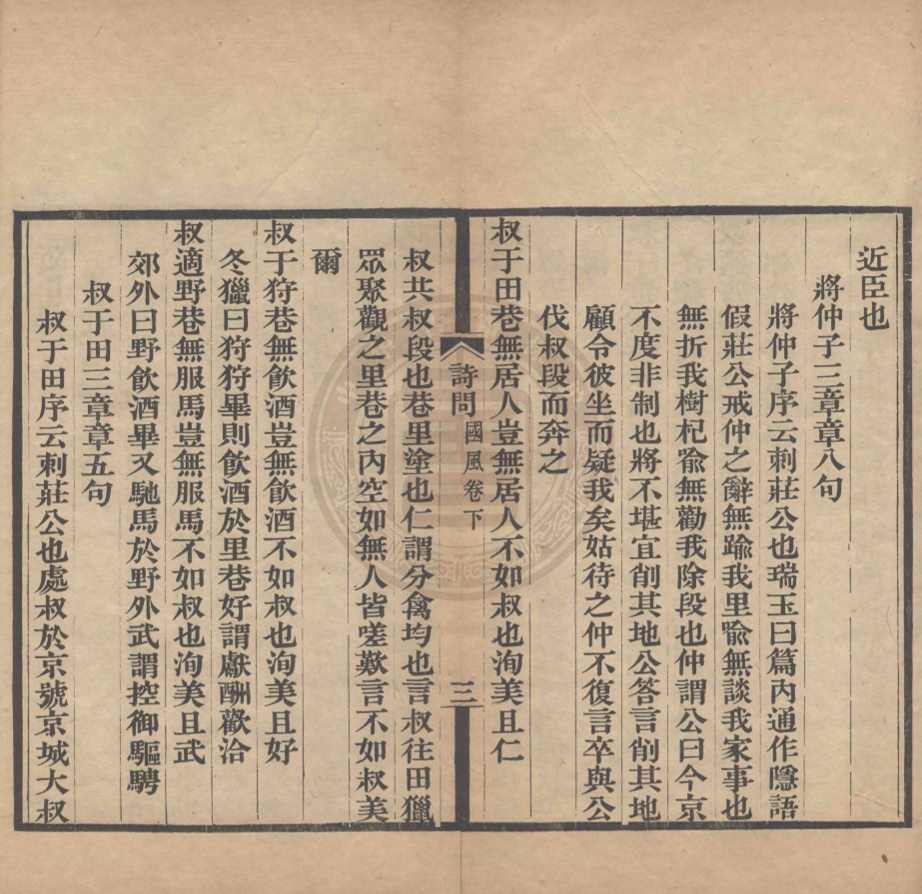 近臣也
將仲子三章章八句
將仲子序云刺莊公也瑞玉曰篇內通作隱語
假莊公戒仲之辭無踰我里喻無談我家事也
無折我樹杞喻無勸我除段也仲謂公曰今京
不度非制也將不堪宜削其地公答言削其地
顧令彼坐而疑我矣姑待之仲不復言卒與公
伐叔段而奔之
叔于田巷無居人豈無居人不如叔也洵美且仁
詩問 國風卷下 三
叔共叔段也巷里塗也仁謂分禽均也言叔往田獵
眾聚觀之里巷之內空如無人皆嗟歎言不如叔美
爾
叔于狩巷無飲酒豈無飲酒不如叔也洵美且好
冬獵曰狩狩畢則飲酒於里巷好謂獻酬歡洽
叔適野巷無服馬豈無服馬不如叔也洵美且武
郊外曰野飲酒畢又馳馬於野外武謂控御驅騁
叔于田三章章五句
叔于田序云刺莊公也處叔於京號京城大叔